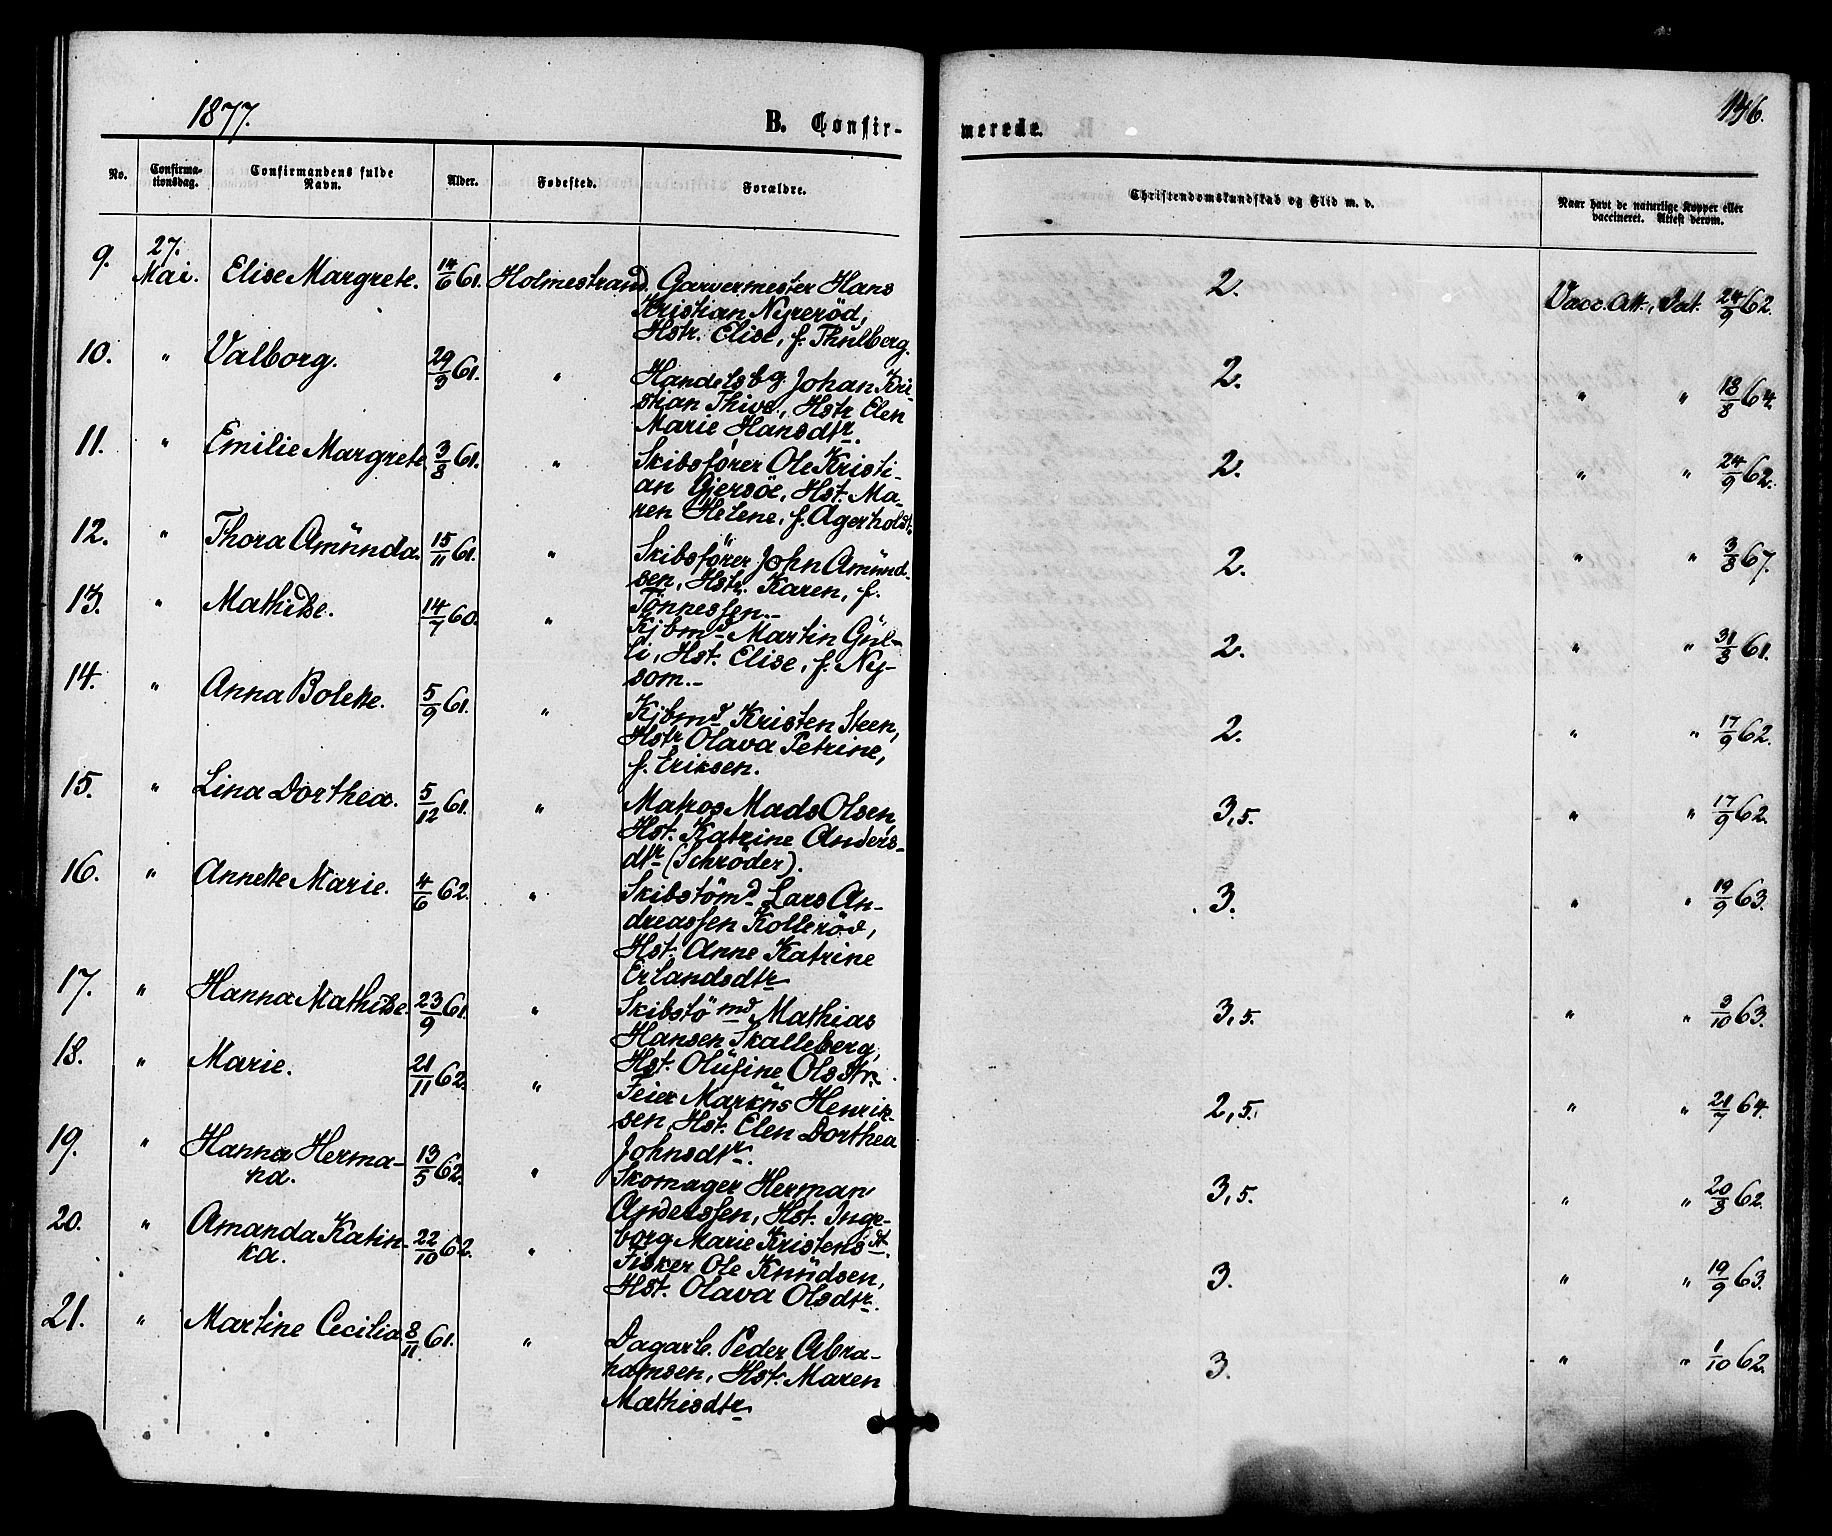 1877.
B. Confirmerede.
146.
No. Confirmationsdag. Confirmandens fulde Navn. Alder. Fødested. Forældre. Christendomskundskab og Flid m. v. Naar havt de naturlige Kopper eller vaccineret. Attest derom.
9. 27. Mai. Elise Margrete. 14/6 61. Holmestrand. Garvermester Hans
Kristian Nyrerød,
Hstr. Elise, f. Thulberg.
2. Vacc. Att., Dat. 24/9 62.
10. " Valborg. 29/9 61. " Handelsbg. Johan Kri-
stian Thive, Hstr Elen
Marie Hansdtr.
2. " " 18/8 64.
11. " Emilie Margrete. 3/8 61. " Skibsfører Ole Kristi-
an Gjersöe, Hst. Ma-
ren Helene, f. Agerholdt.
2. " " 24/9 62.
12. " Thora Amünda. 15/11 61. " Skibsfører John Amünd-
sen, Hstr. Karen, f.
Tönnessen.-
2. " " 3/8 67.
13. " Mathilde. 14/7 60. " Kjbmd Martin Gül-
li, Hst. Elise, f. Ny-
som.-
2. " " 31/8 61.
14. " Anna Bolette. 5/9 61. " Kjbmd Kristen Steen,
Hstr Olava Petrine,
f. Eriksen.
2. " " 17/9 62.
15. " Lina Dorthea. 5/12 61. " Matros Mads Olsen,
Hst. Katrine Anders-
dtr (Schröder).
3,5. " " 17/9 62.
16. " Annette Marie. 4/6 62. " Skibstömd Lars An-
dreassen Kolleröd,
Hst. Anne Katrine
Erlandsdtr
3. " " 19/9 63.
17. " Hanna Mathilde. 23/9 61. " Skibstömd Mathias
Hansen Skalleberg,
Hst. Olüfine Olsdtr.
3,5. " " 3/10 63.
18. " Marie. 21/11 62. " Feier Marküs Henrik-
sen, Hst. Elen Dorthea
Johnsdtr.
2,5. " " 21/7 64.
19. " Hanna Herma-
na. 13/5 62. " Skomager Herman
Anderssen, Hst. Inge-
borg Marie Kristensdt.
3,5. " " 20/8 62.
20. " Amanda Katin-
ka. 22/10 62. " Fisker Ole Knüdsen,
Hst. Olava Olsdtr.
3. " " 19/9 63.
21. " Martine Cecilia. 8/11 61. " Dagarb. Peder Abra-
hamsen, Hst. Maren
Mathisdtr.
3. " " 1/10 62.